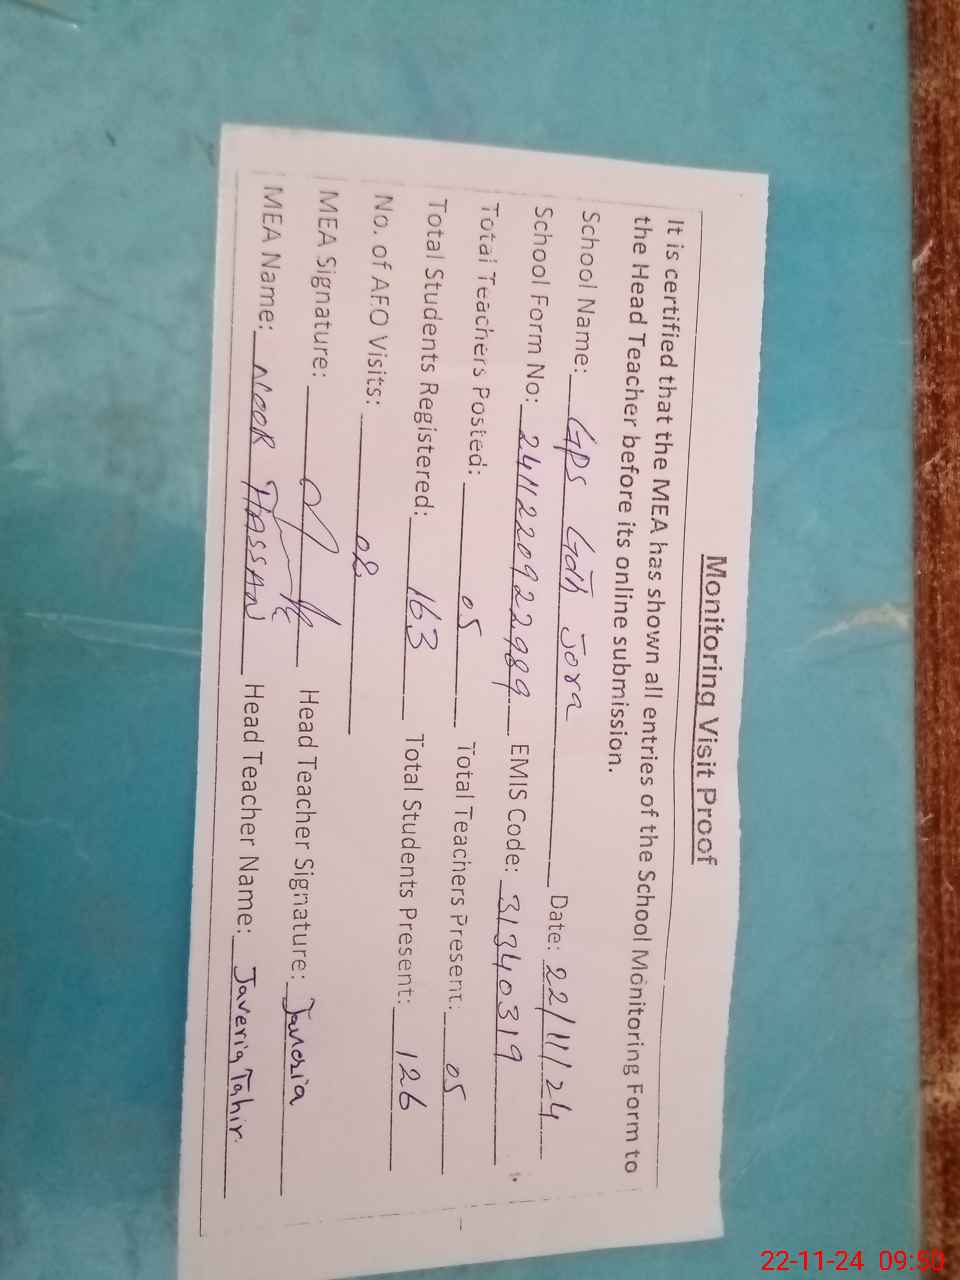 Monitoring Visit Proof
It is certified that the MEA has shown all entries of the School Monitoring Form to
the Head Teacher before its online submission.
School Name: GPS Gdh Jora Date: 22/11/24
School Form No: 2411220922989 EMIS Code: 31340319
Total Teachers Posted: 05 Total Teachers Present: 05
Total Students Registered: 163 Total Students Present: 126
No. of AEO Visits: 02
MEA Signature: Head Teacher Signature: Javeria
MEA Name: NOOR HASSAN Head Teacher Name: Javeria Tahir
22-11-24 09:50